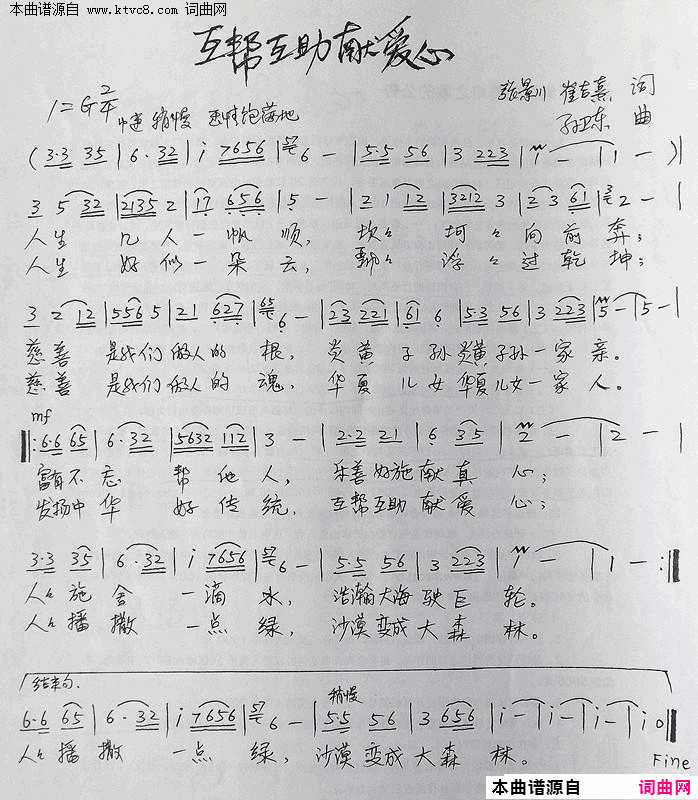 本曲谱源自 www.ktvc8.com 词曲网
互帮互助献爱心
1=G 2/4 中速 稍慢 饱满地
张景川 崔吉熹 词
孙卫东 曲
(3·3 35 | 6·32 | i 7656 | 57 6 - | 5·5 56 | 3 223 | 1 - | 1 - )|
3 5 32 | 2135 2 | 17 656 | 5 - | 2 1 12 | 3212 3 | 2 3 61 | 3 2 - |
人生 几人一帆顺, 坎々坷々向前奔;
人生 好似一朵云, 飘々浮々过乾坤;
3 2 12 | 556 5 | 21 627 | 65 6 - | 23 221 | 61 6 | 5·3 56 | 3 223 | 5 - | 5 - |
慈善 是我们做人的根, 炎黄子孙炎黄子孙一家亲。
慈善 是我们做人的魂, 华夏儿女华夏儿女一家人。
mf
|: 6·6 65 | 6·32 | 5632 112 | 3 - | 2·2 21 | 6 35 | 2 - | 2 - |
富有不忘 帮他人, 乐善好施献真心;
发扬中华 好传统, 互帮互助献爱心;
3·3 35 | 6·32 | i 7656 | 57 6 - | 5·5 56 | 3 223 | 1 - | 1 - :|
人々施舍一滴水, 浩瀚大海驶巨轮。
人々播撒一点绿, 沙漠变成大森林。
结束句. 稍慢
6·6 65 | 6·32 | i 7656 | 57 6 - | 5·5 56 | 3 656 | i - | i - | i - | i 0 |
人々播撒一点绿, 沙漠变成大森林。
Fine
本曲谱源自 词曲网